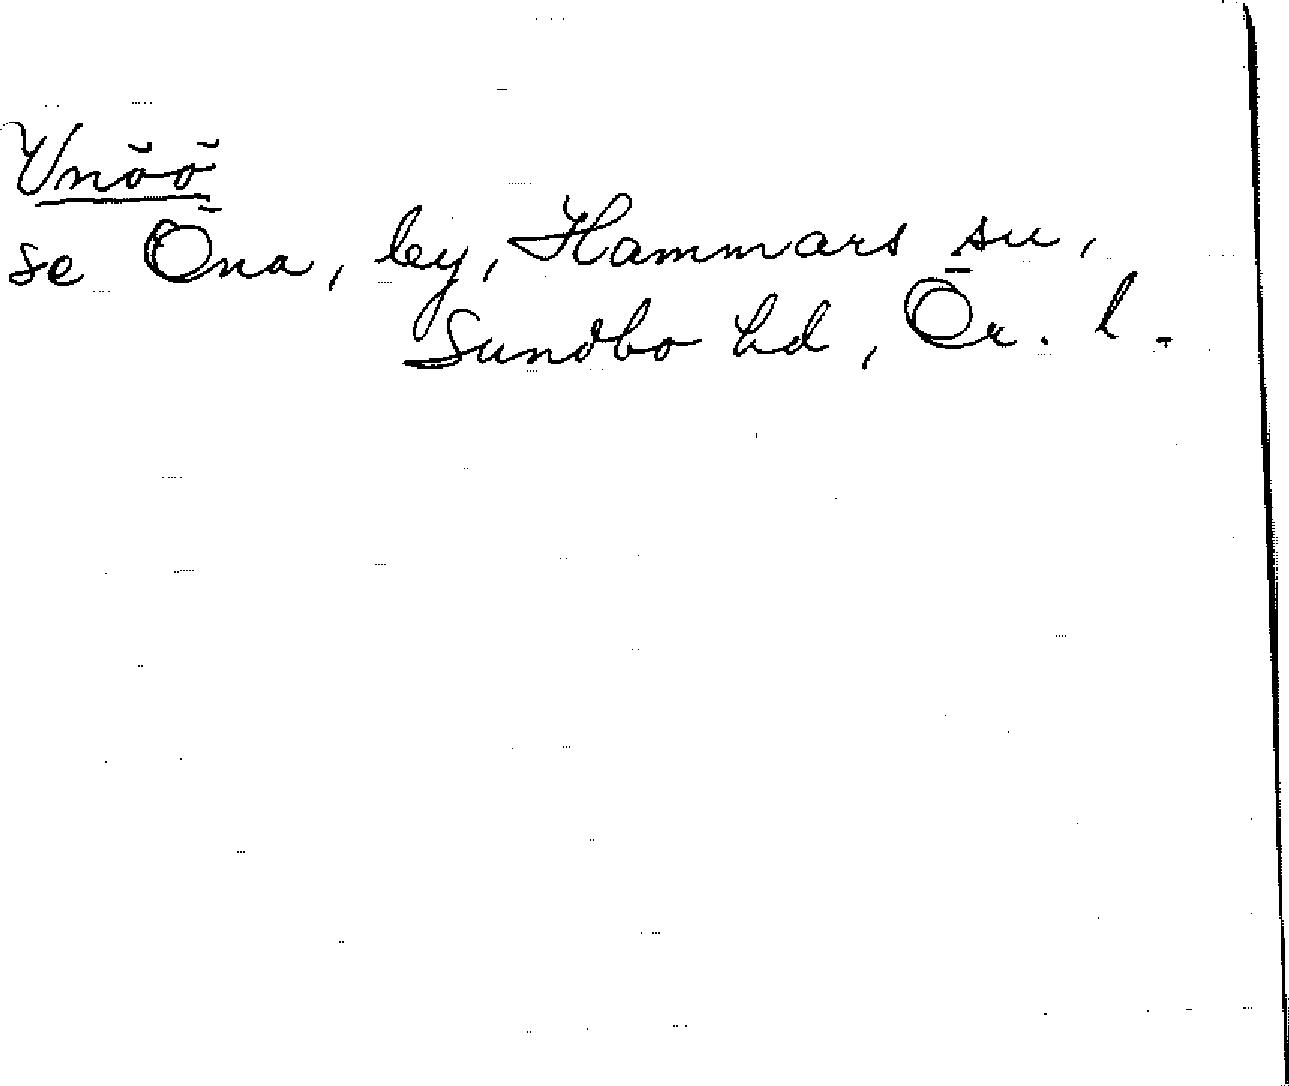 Vnöö
se Öna, by, Hammars sn,
Sundbo hd, Ör. l.